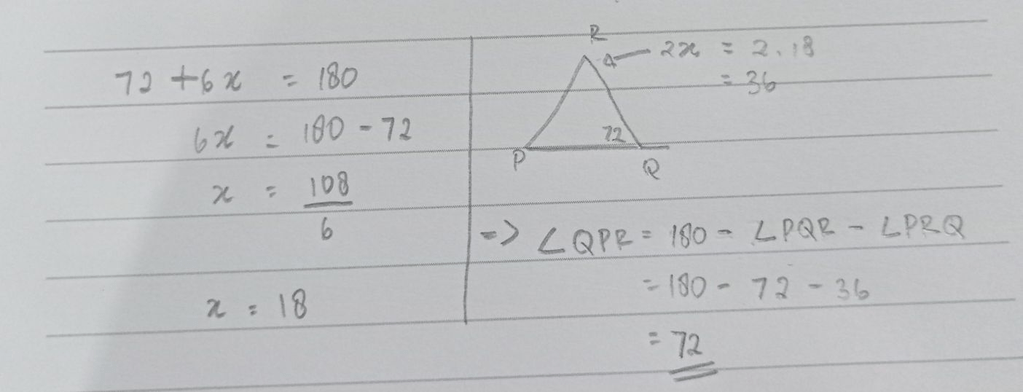 72 + 6x = 180
6x = 180 - 72
x = 108
6
x = 18
R
2x = 2.18
= 36
72
P
Q
=> ∠QPR = 180 - ∠PQR - ∠PRQ
= 180 - 72 - 36
= 72